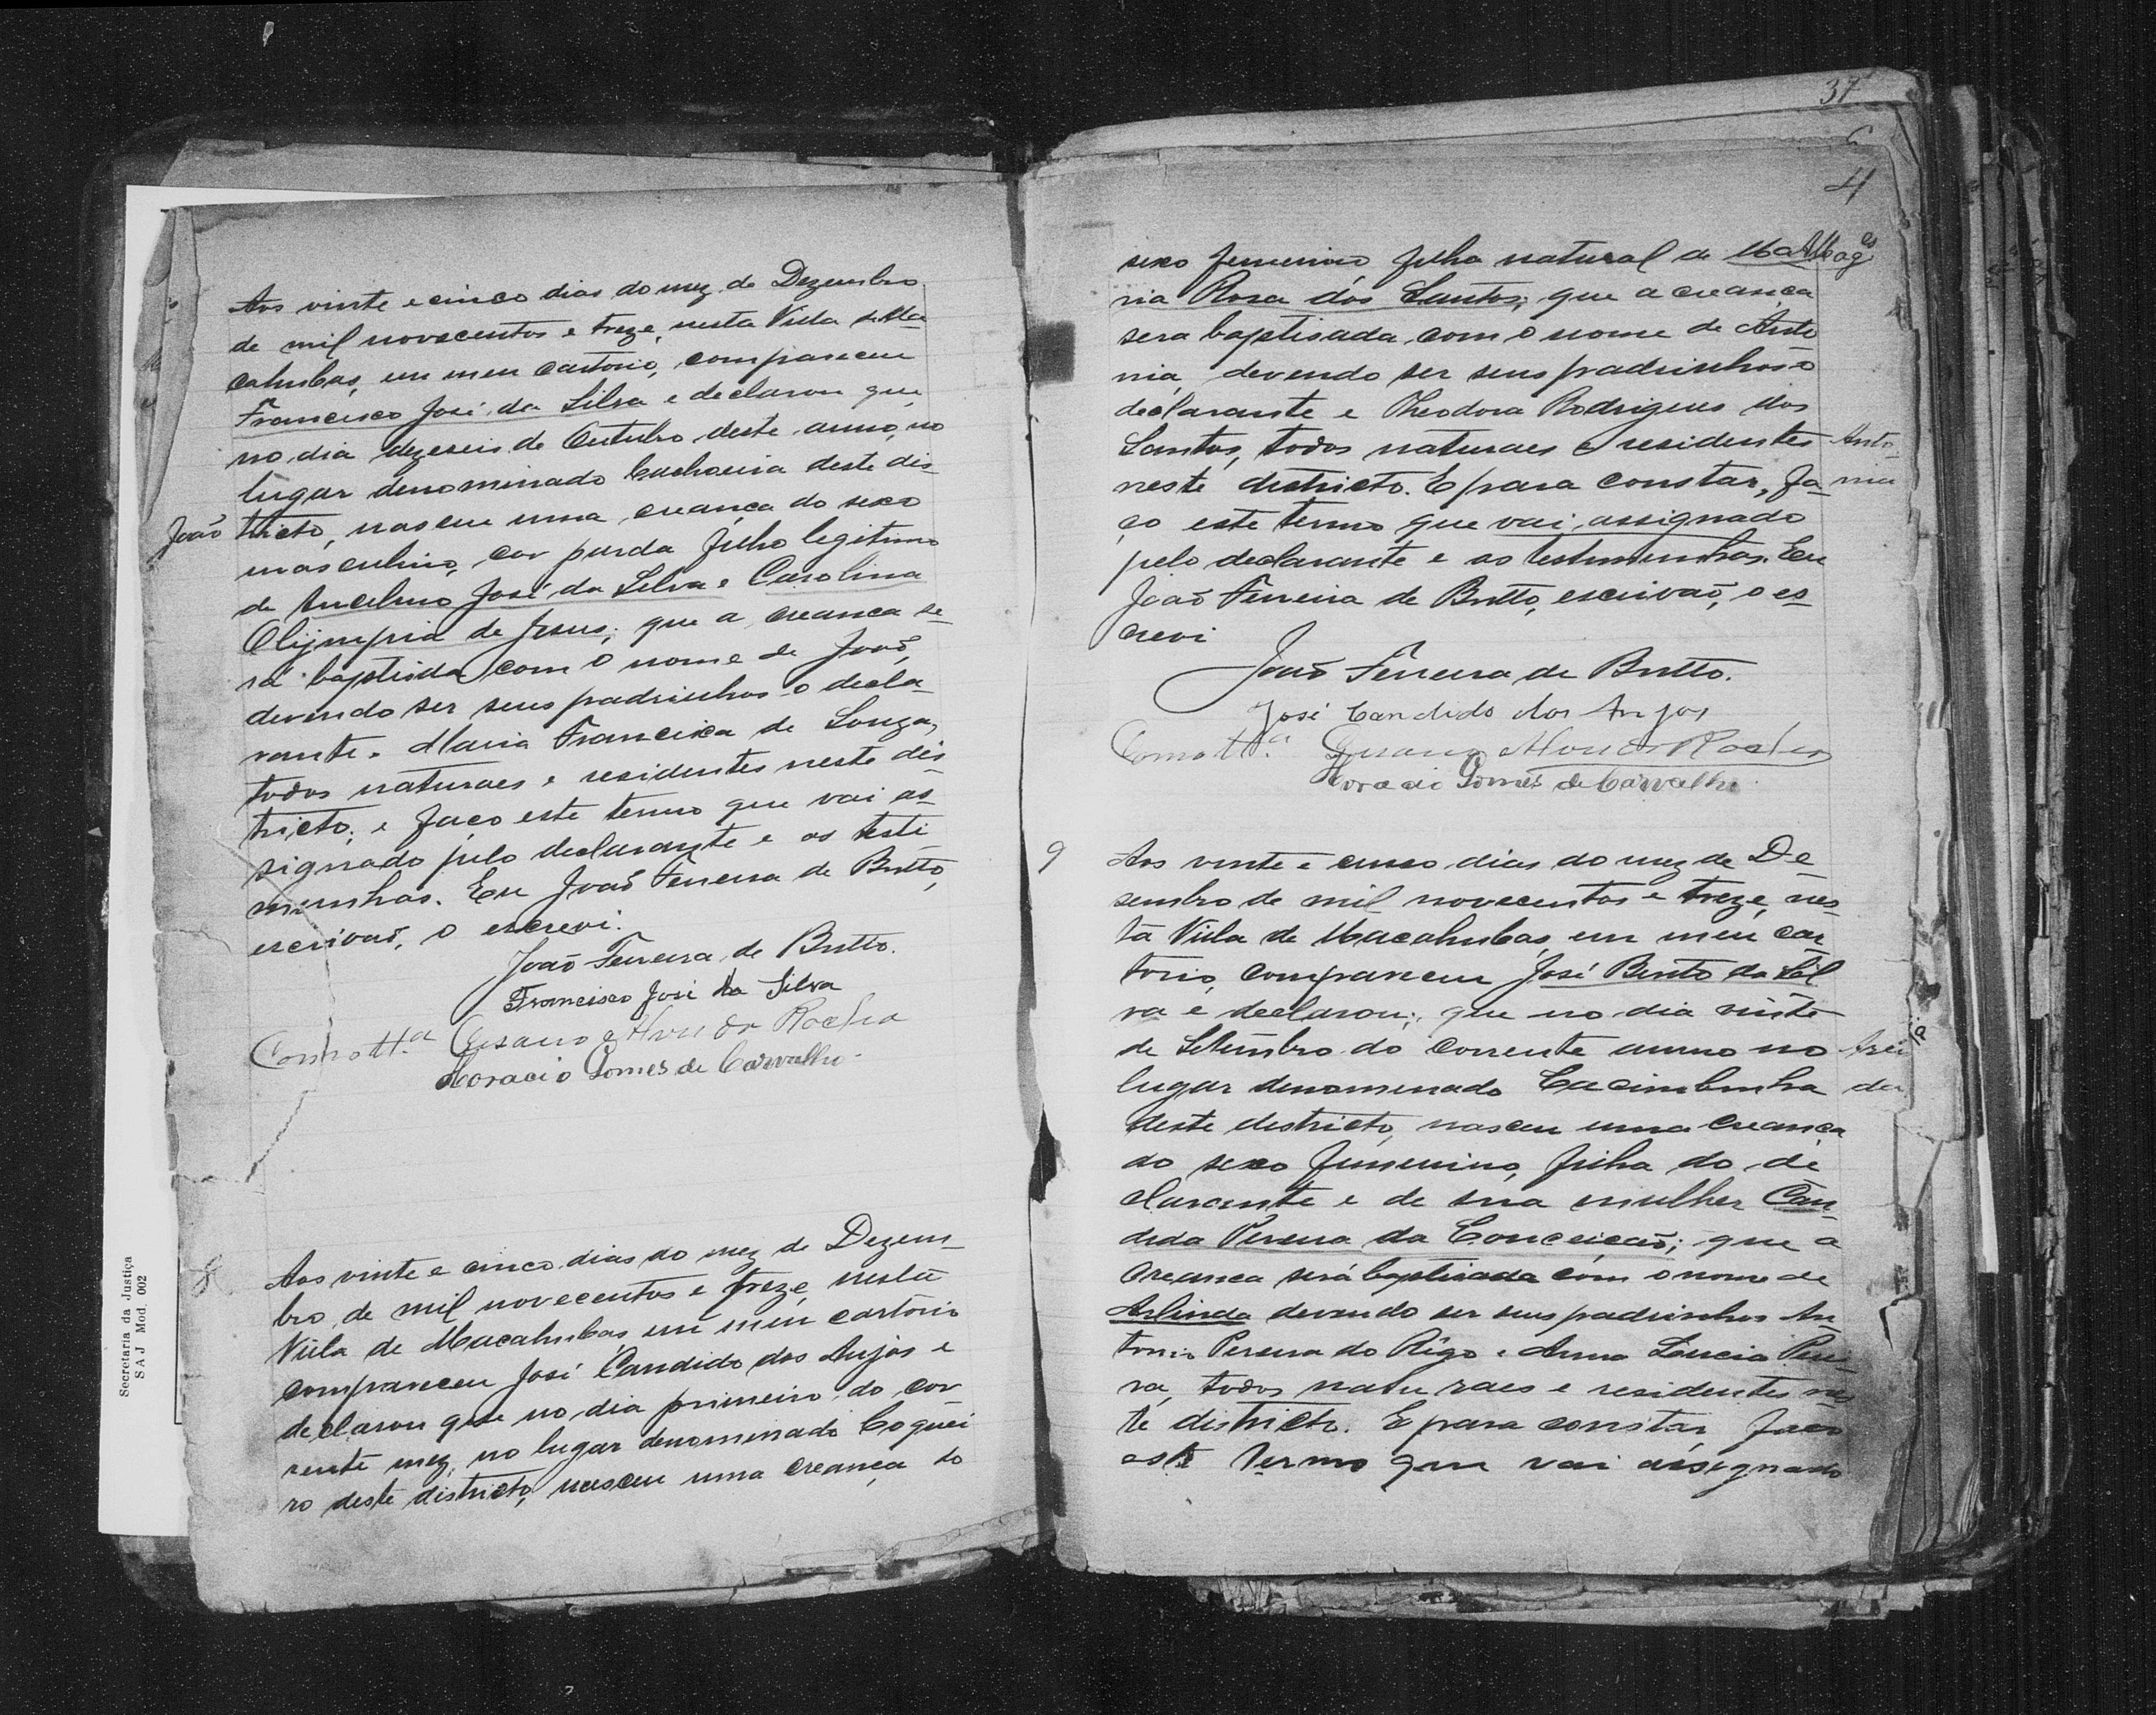 Aos vinte e cinco dias do mez de Dezembro
de mil novecentos e treze, nesta Villa de Ma
cahubas, em meu cartorio, compareceu
Francisco José da Silva e declarou que,
no dia dezeseis de Outubro deste anno, no
lugar denominado Cachoeira deste dis
João
tricto, nasceu uma creança do sexo
masculino, cor parda filho legitimo
de Ancelmo José da Silva e Carolina
Olijmpia de Jesus; que a creança se
rá baptisda com o nome de João,
devendo ser seus padrinhos o decla
rante e Maria Francisca de Souza,
todos naturaes e residentes neste dis
tricto; e faço este termo que vai as
signado pelo declarante e as teste
munhas. Eu João Ferreira de Britto,
escrivaõ, o escrevi.
João Ferreira de Britto.
Francisco José da Silva
Como tt.a Cesario Alves da Rocha
Horacio Gomes de Carvalho
8
Aos vinte e cinco dias do mez de Dezem
bro de mil novecentos e treze, nesta
Villa de Macahubas, em meu cartorio
compareceu José Candido dos Anjos e
declarou que no dia primeiro do cor
rente mez, no lugar denominado Coquei
ro deste districto, nasceu uma creança do
Secretaria da Justiça
SAJ Mod. 002
37
6
4
sexo femenino filha natural de Ma
ria Rosa dos Santos; que a creança
sera baptisada com o nome de Anto
nia, devendo ser seus padrinhos o
declarante e Theodora Rodrigues dos
Santos, todos naturaes e residentes
Anto
nia
neste districto. E para constar, fa
ço este termo que vai assignado
pelo declarante e as testemunhas. Eu
João Ferreira de Britto, escrivaõ, o es
crevi
João Ferreira de Britto.
José Candido dos Anjos
Como tt.a Cesario Alves da Rocha
Horacio Gomes de Carvalho
9
Aos vinte e cinco dias do mez de De
sembro de mil novecentos e treze, nes
ta Villa de Macahubas, em meu car
torio, compareceu José Bento da Sil
va e declarou; que no dia vinte
de Setembro do corrente anno no
lugar denomenado Cacimbinha
deste destricto, nasceu uma creança
do sexo femenino, filha do de
clarante e de sua mulher Can
dida Pereira da Conceição; que a
Creança será baptisada com o nome de
Arlinda devendo ser seus padrinhos An
tonio Pereira do Rêgo e Anna Lucia Perei
ra, todos naturaes e residentes nes
te districto. E para constar, faço
este termo que vai assegnado